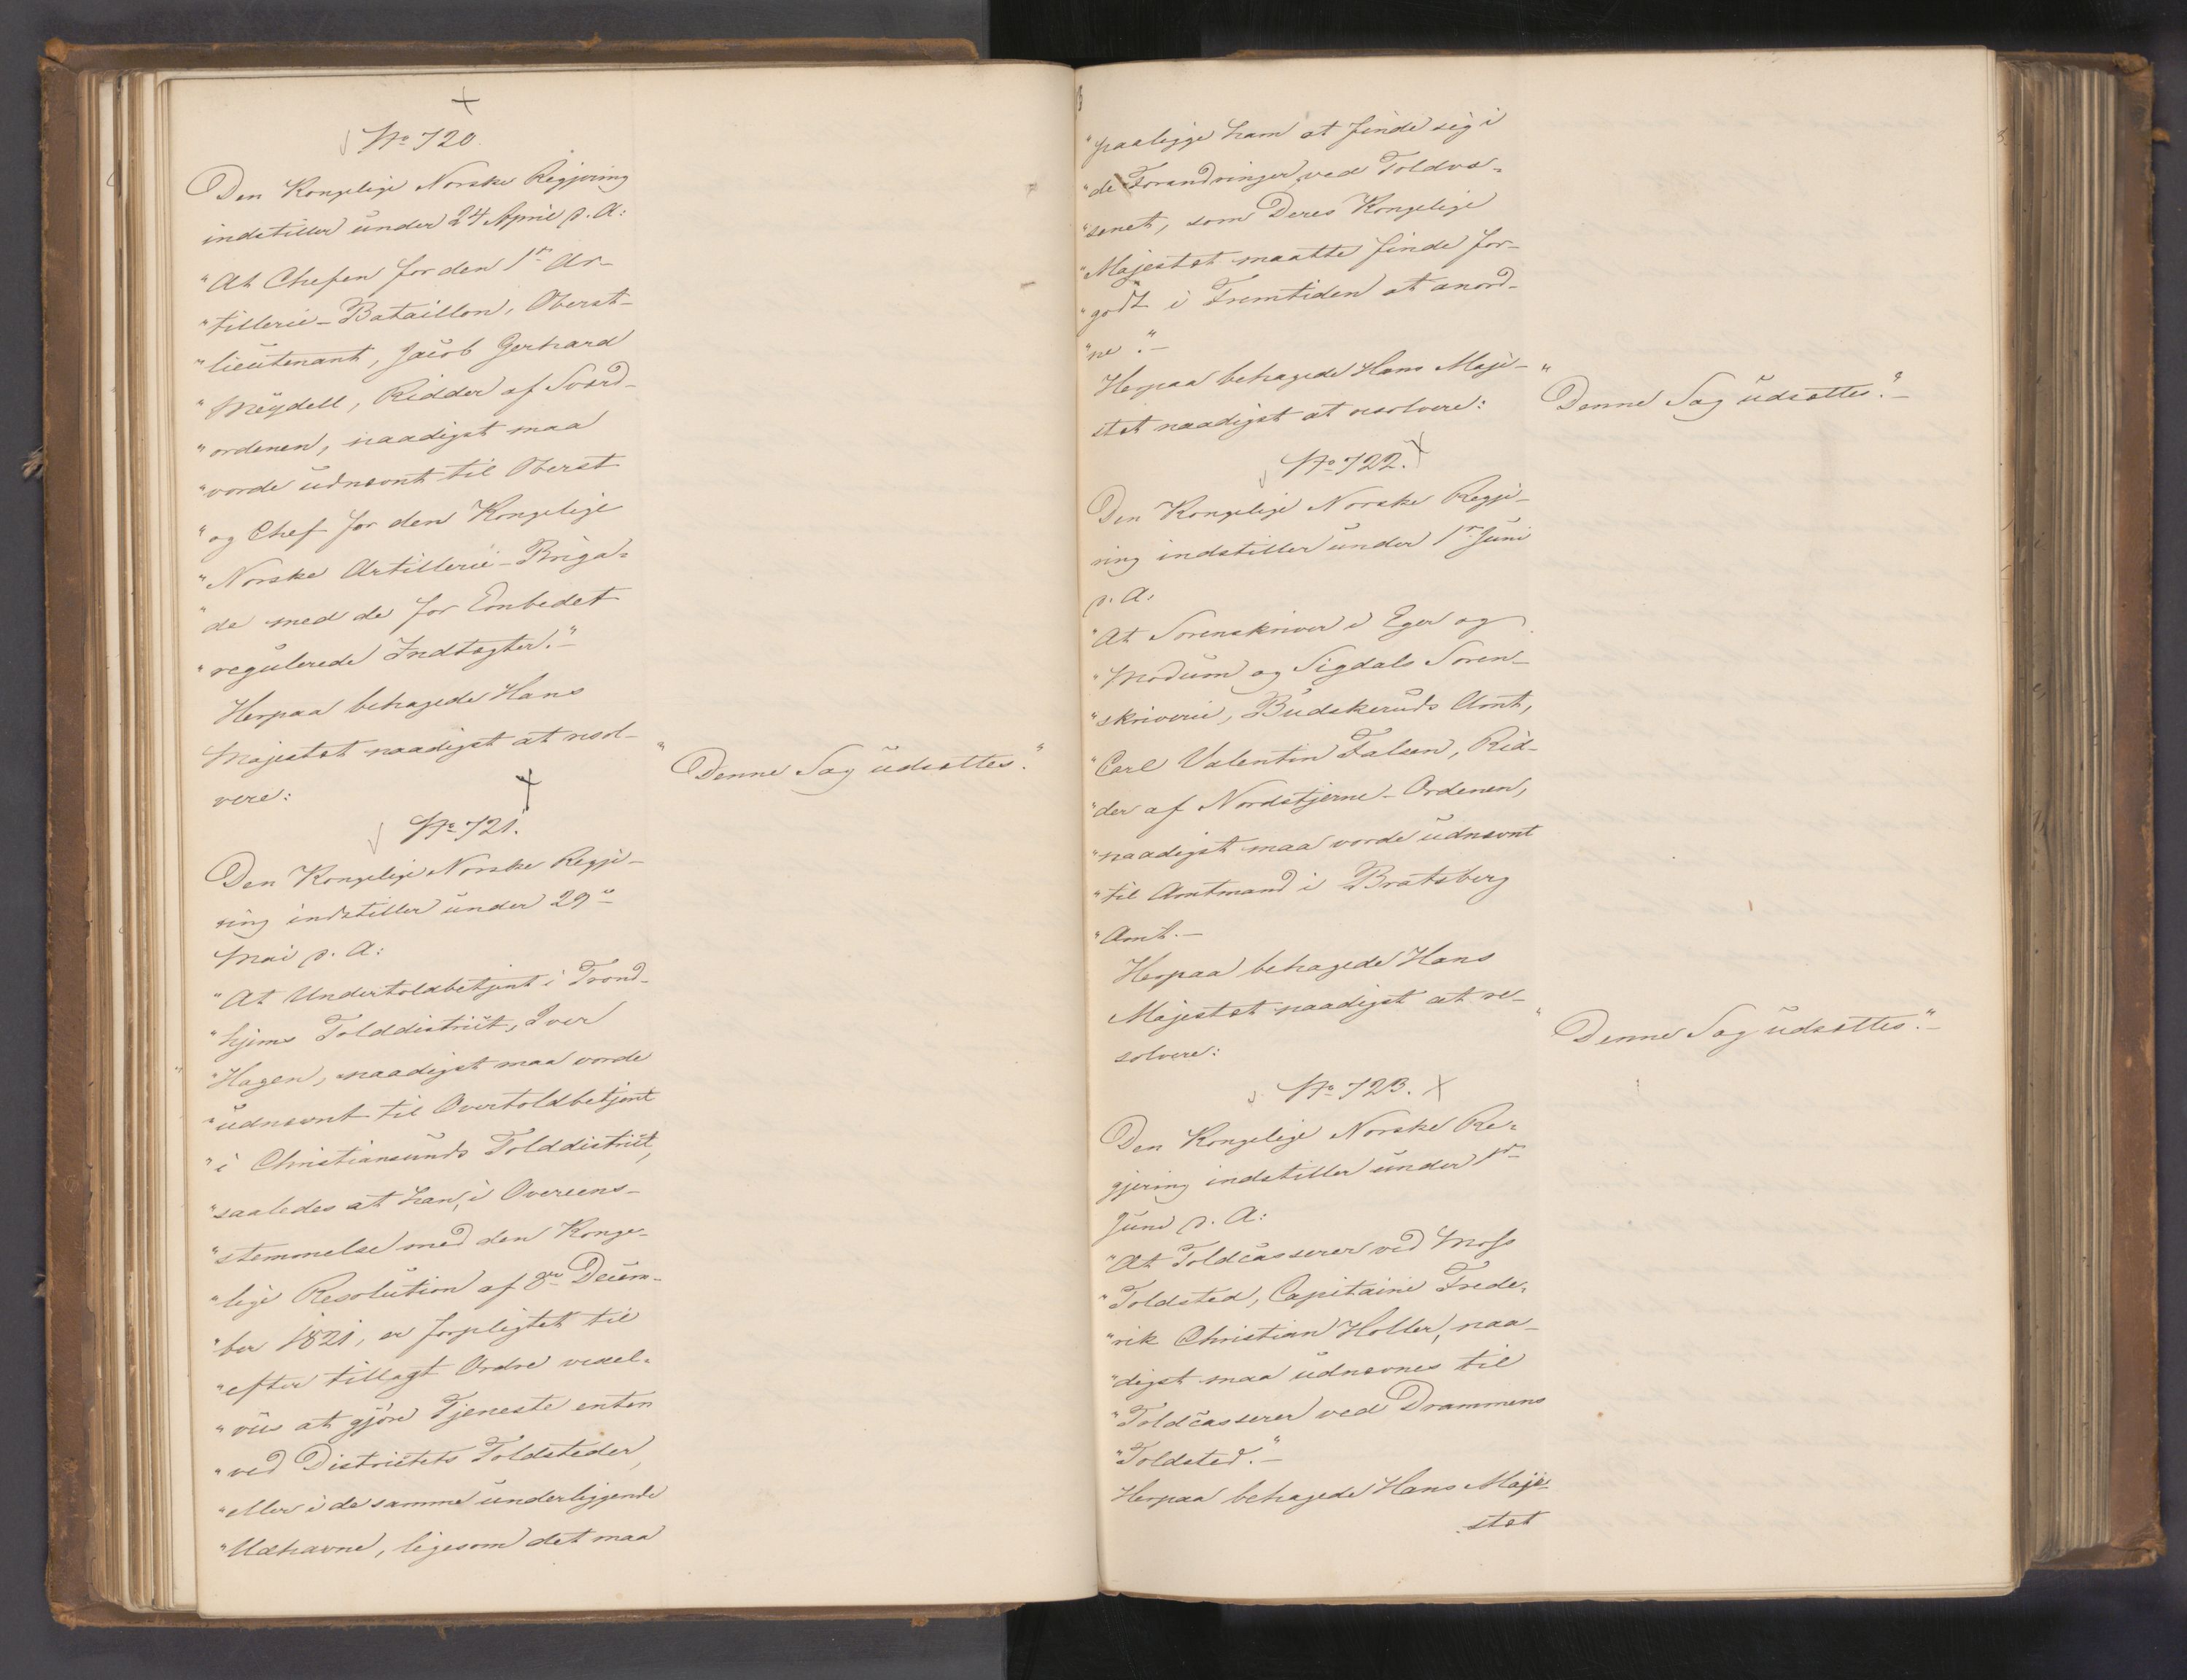 No 720.
Den Kongelige Norske Regjering
indstiller under 24 April d. A:
"At Chefen for den 1ste Ar-
"tillerie-Bataillon, Oberst-
"lieutenant, Jacob Gerhard
"Meydell, Ridder af Sværd-
"ordenen, naadigst maa
"vorde udnævnt til Oberst
"og Chef for den Kongelige
"Norske Artillerie-Briga-
"de med de for Embedet
"regulerede Indtægter."-
Herpaa behagede Hans
Majestæt naadigst at resol-
vere:
"Denne Sag udsættes."
No 721.
Den Kongelige Norske Regje-
ring indstiller under 29de
Mai d. A:
"At Undertoldbetjent i Trond-
"hjems Tolddistrict, Iver
"Hagen, naadigst maa vorde
"udnævnt til Overtoldbetjent
"i Christiansunds Tolddistrict,
"saaledes at han, i Overeens-
"stemmelse med den Konge-
"lige Resolution af 8de Decem-
"ber 1821, er forpligtet til
"efter tillagt Ordre vexel-
"viis at gjöre Tjeneste enten
"ved Districtets Toldsteder,
"eller i de samme underliggende
"Udhavne, ligesom det maa
"paaligge ham at finde sig i
"de Forandringer ved Toldvæ-
"senet, som Deres Kongelige
"Majestæt maatte finde for-
"godt i Fremtiden at anord-
"ne."-
Herpaa behagede Hans Maje-
stæt naadigst at resolvere:
"Denne Sag udsættes."-
No 722.
Den Kongelige Norske Regje-
ring indstiller under 1ste Juni
d. A:
"At Sorenskriver i Eger og
"Modum og Sigdals Soren-
"skriverie, Buskeruds Amt,
"Carl Valentin Falsen, Rid-
"der af Nordstjerne-Ordenen,
"naadigst maa vorde udnævnt
"til Amtmand i Bratsberg
"Amt.-
Herpaa behagede Hans
Majestæt naadigst at re-
solvere:
"Denne Sag udsættes."-
No 723.
Den Kongelige Norske Re-
gjering indstiller under 1ste
Juni d. A:
"At Toldcasserer ved Moss
"Toldsted, Capitaine Frede-
"rik Christian Holler, naa-
"digst maa udnævnes til
"Toldcasserer ved Drammens
"Toldsted."-
Herpaa behagede Hans Maje-
stæt